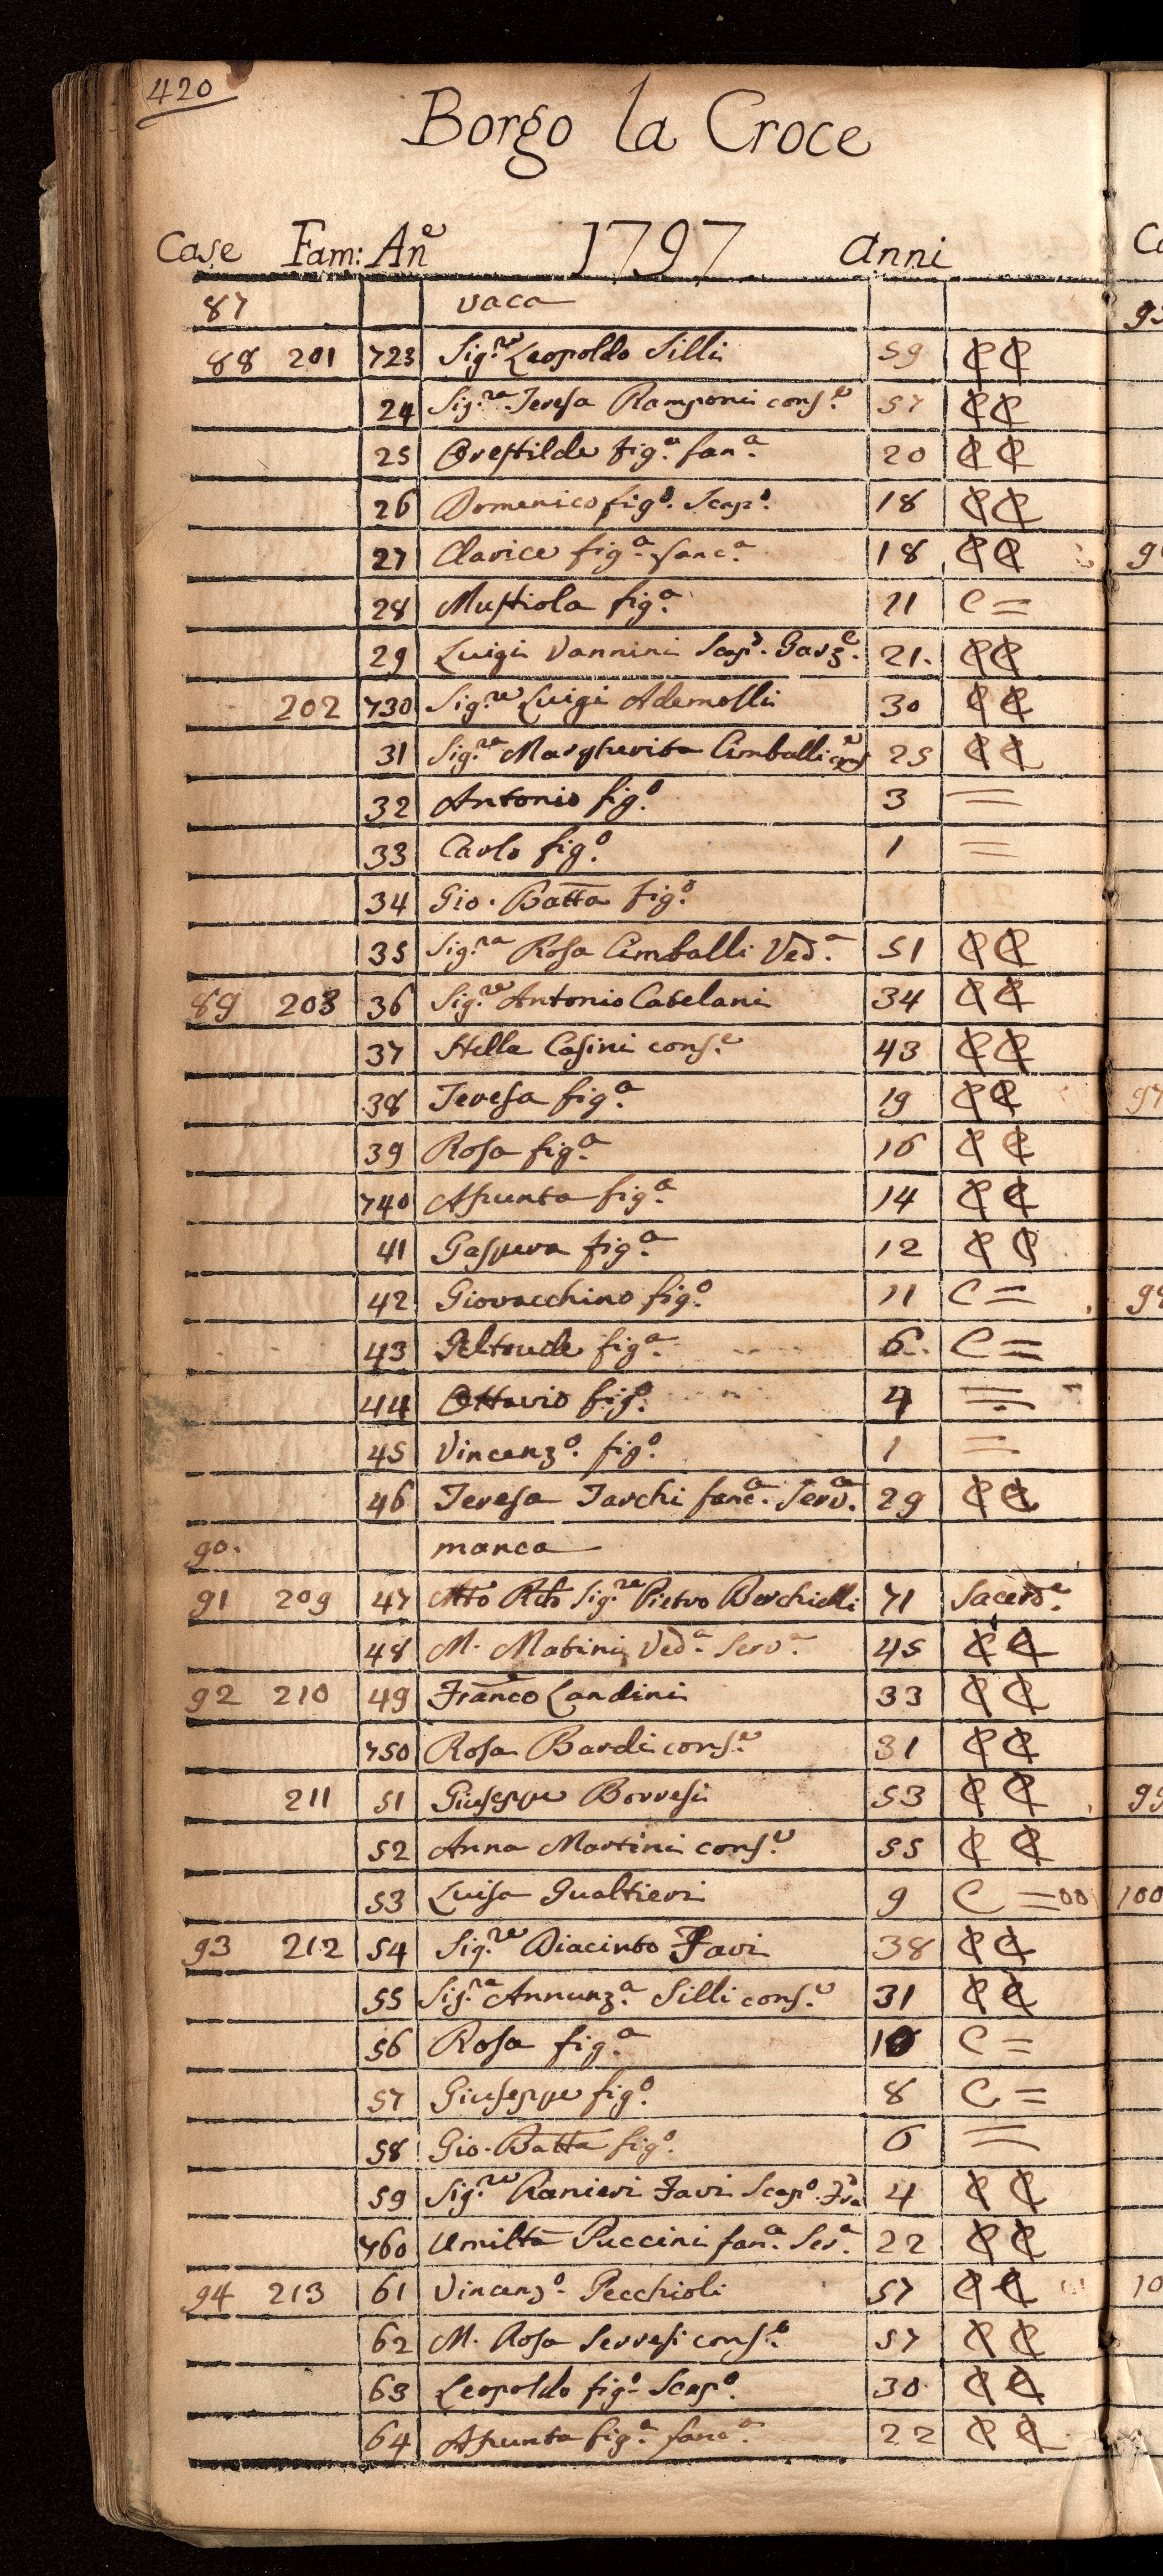 420
Borgo la Croce
Case Fam: An.e 1797 anni
87 vaca
88 201 723 Sig.re Leopoldo Silli 59 C C
24 Sig.ra Teresa Ramponi cons.e 57 C C
25 Orestilde fig.a fan.a 20 C C
26 Domenico fig.o Scap.o 18 C C
27 Clarice fig.a fanc.a 18 C C
28 Mustiola fig.a 11 C =
29 Luigi Vannini Scap.o Garz.e 21. C C
202 730 Sig.re Luigi Ademolli 30 C C
31 Sig.ra Margherita Cimballi cons.e 25 C C
32 Antonio fig.o 3 =
33 Carlo fig.o 1 =
34 Gio. Batta fig.o
35 Sig.ra Rosa Cimballi Ved.a 51 C C
89 208 36 Sig.re Antonio Catelani 34 C C
37 Stella Casini cons.e 43 C C
38 Teresa fig.a 19 C C
39 Rosa fig.a 16 C C
740 Assunta fig.a 14 C C
41 Gaspera fig.a 12 C C
42 Giovacchino fig.o 11 C =
43 Geltrude fig.a 6. C =
44 Ottavio fig.o 4 =
45 Vincenz.o fig.o 1 =
46 Teresa Tarchi fanc.a Serv.a 29 C C
90. manca
91 209 47 Sig.re Pietro Berchielli 71 Sacerd.e
48 M. Matini Ved.a Serv.a 45 C C
92 210 49 Franco Landini 33 C C
750 Rosa Bardi cons.e 31 C C
211 51 Giuseppe Borresi 53 C C
52 Anna Martini cons.e 55 C C
53 Luisa Gualtieri 9 C = 00
93 212 54 Sig.re Diacinto Favi 38 C C
55 Sig.ra Annunz.a Silli cons.e 31 C C
56 Rosa fig.a 10 C =
57 Giuseppe fig.o 8 C =
58 Gio. Batta fig.o 6 =
59 Sig.re Ranieri Favi Scap.o 4 C C
760 Umiltà Puccini fan.a Ser.a 22 C C
94 213 61 Vincenz.o Pecchioli 57 C C
62 M. Rosa Serresi cons.e 57 C C
63 Leopoldo fig.o Scap.o 30 C C
64 Assunta fig.a fanc.a 22 C C